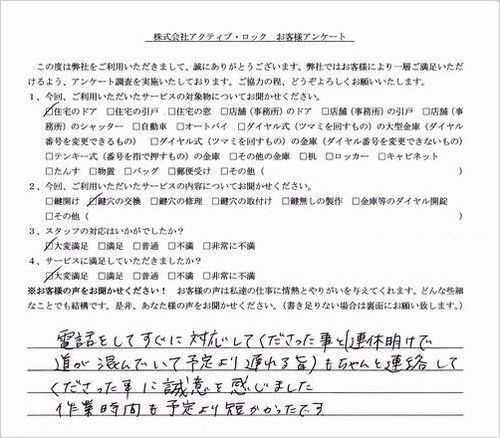 株式会社アクティブ・ロック　お客様アンケート
この度は弊社をご利用いただきまして、誠にありがとうございます。弊社ではお客様により一層ご満足いただ
けるよう、アンケート調査を実施いたしております。ご協力の程、どうぞよろしくお願いいたします。
1、今回、ご利用いただいたサービスの対象物についてお聞かせください。
☑住宅のドア　□住宅の引戸　□住宅の窓　□店舗（事務所）のドア　□店舗（事務所）の引戸　□店舗（事
務所）のシャッター　□自動車　□オートバイ　□ダイヤル式（ツマミを回すもの）の大型金庫（ダイヤル
番号を変更できるもの）　□ダイヤル式（ツマミを回すもの）の金庫（ダイヤル番号を変更できないもの）
□テンキー式（番号を指で押すもの）の金庫　□その他の金庫　□机　□ロッカー　□キャビネット
□たんす　□物置　□バッグ　□郵便受け　□その他（　　　　　）
2、今回、ご利用いただいたサービスの内容についてお聞かせください。
□鍵開け　☑鍵穴の交換　□鍵穴の修理　□鍵穴の取付け　□鍵無しの製作　□金庫等のダイヤル開錠
□その他（　　　　　）
3、スタッフの対応はいかがでしたか？
☑大変満足　□満足　□普通　□不満　□非常に不満
4、サービスに満足していただきましたか？
☑大変満足　□満足　□普通　□不満　□非常に不満
※お客様の声をお聞かせください！　お客様の声は私達の仕事に情熱とやりがいを与えてくれます。どんな些細
なことでも結構です。是非、あなた様の声をお聞かせください。（書き足りない場合は裏面にお願い致します。）
電話をしてすぐに対応してくださった事と（連休明けで
道が混んでいて予定より遅れる旨）もちゃんと連絡して
くださった事に誠意を感じました
作業時間も予定より短かかったです